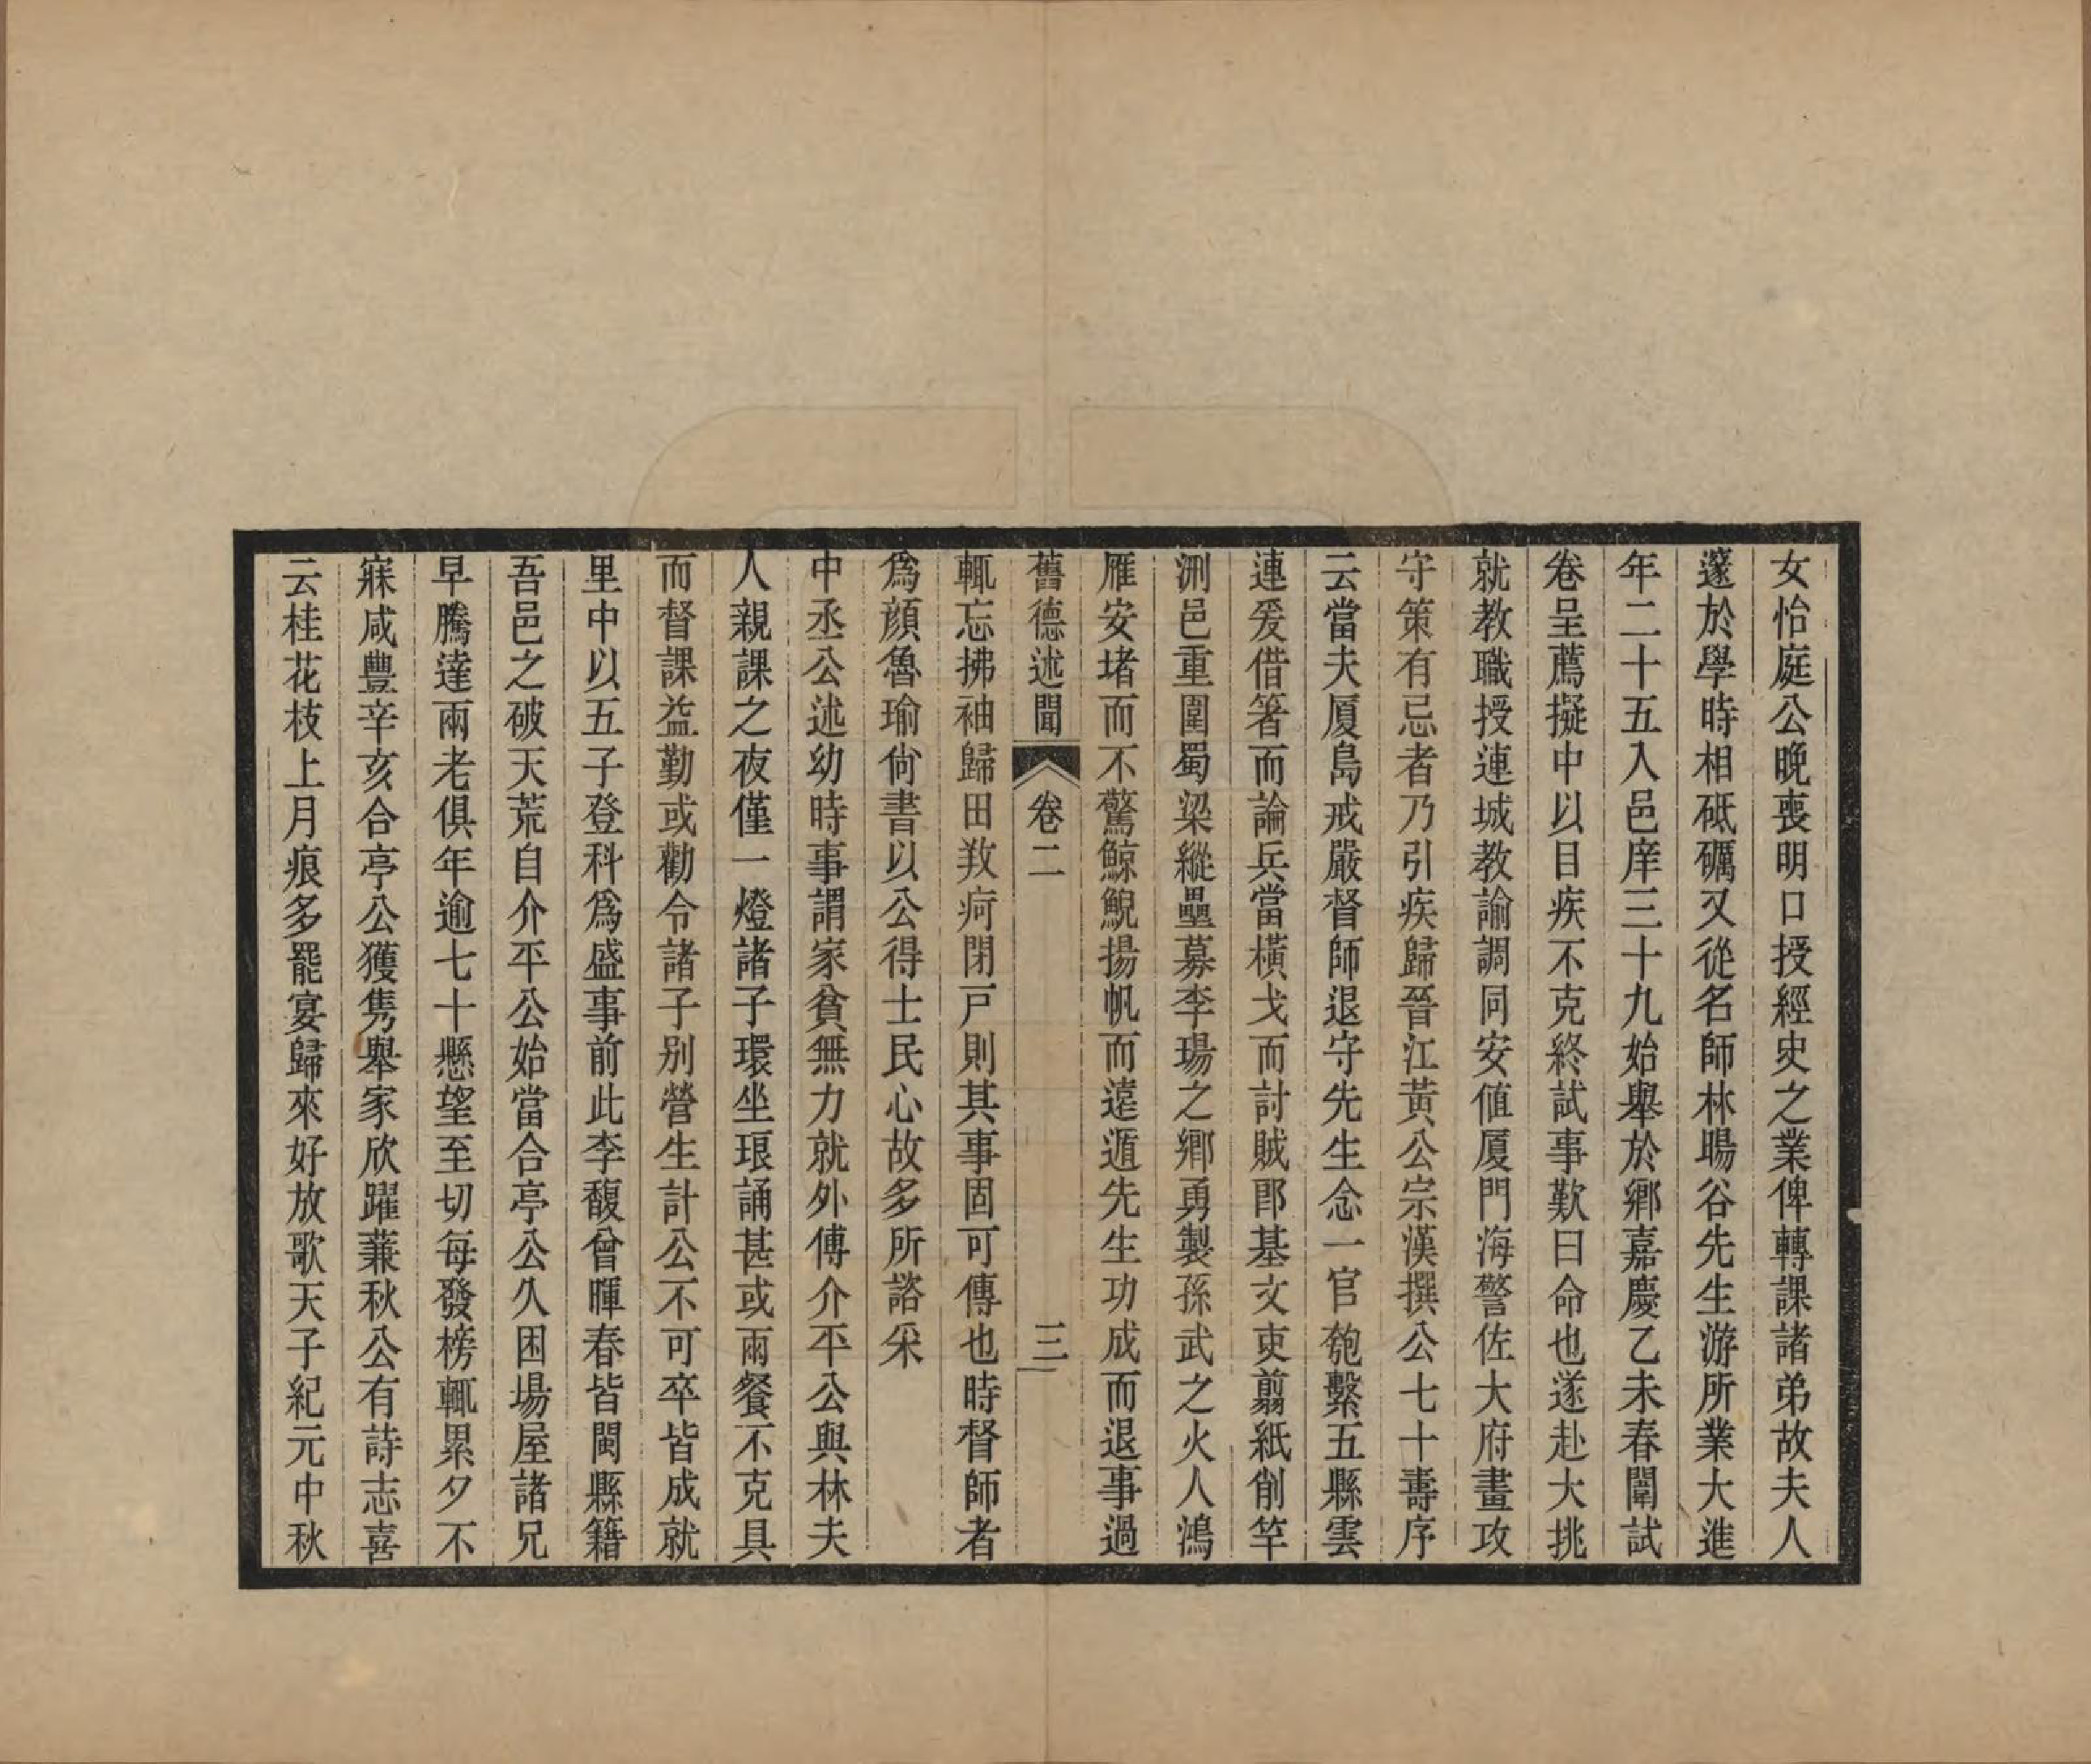 女怡庭公晚喪明口授經史之業俾轉課諸弟故夫人
邃於學時相砥礪又從名師林暘谷先生游所業大進
年二十五入邑庠三十九始舉於鄉嘉慶乙未春闈試
卷呈薦擬中以目疾不克終試事歎曰命也遂赴大挑
就教職授連城教諭調同安值厦門海警佐大府畫攻
守策有忌者乃引疾歸晉江黃公宗漢撰公七十壽序
云當夫厦島戒嚴督師退守先生念一官匏繫五縣雲
連爰借箸而論兵當橫戈而討賊郎基文吏翦紙削竿
測邑重圍蜀梁縱壘募李瑒之鄉勇製孫武之火人鴻
雁安堵而不驚鯨鯢揚帆而遠遁先生功成而退事過
舊德述聞 卷二 三
輒忘拂袖歸田敉疴閉戸則其事固可傳也時督師者
爲顏魯瑜尙書以公得士民心故多所諮采
中丞公述幼時事謂家貧無力就外傅介平公與林夫
人親課之夜僅一燈諸子環坐琅誦甚或兩餐不克具
而督課益勤或勸令諸子别營生計公不可卒皆成就
里中以五子登科爲盛事前此李馥曾暉春皆閩縣籍
吾邑之破天荒自介平公始當合亭公久困場屋諸兄
早騰達兩老俱年逾七十懸望至切每發榜輒累夕不
寐咸豐辛亥合亭公獲雋舉家欣躍蒹秋公有詩志喜
云桂花枝上月痕多罷宴歸來好放歌天子紀元中秋